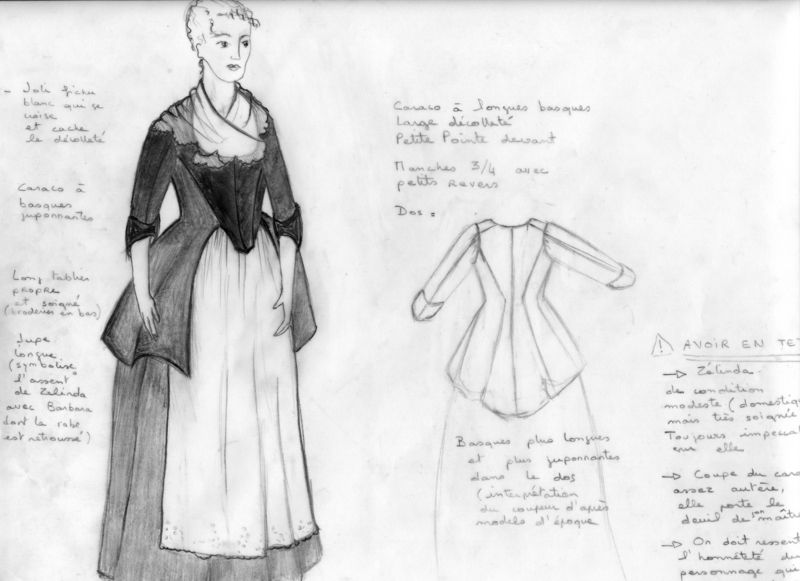 - Joli fichu
blanc qui se
croise
et cache
le décolleté
Caraco à
basques
juponnantes
Long tablier
propre
et soigné
(broderies en bas)
Jupe
longue
(symbolise
de Zélinda
avec Barbara
dont la robe
est retroussé)
Caraco à longues basques
Large décolleté
Petite Pointe devant
Manches 3/4 avec
petits revers
Dos =
Basques plus longues
et plus juponnantes
dans le dos
(interprétation
du coupeur d'après
modèle d'époque
! AVOIR EN TET
→ Zélinda
de condition
modeste (domestiq
mais très soignée
Toujours impecca
sur elle
→ Coupe du cara
assez autère,
elle porte le
deuil de son maître
→ On doit ressent
l'honnêteté du
personnage qui